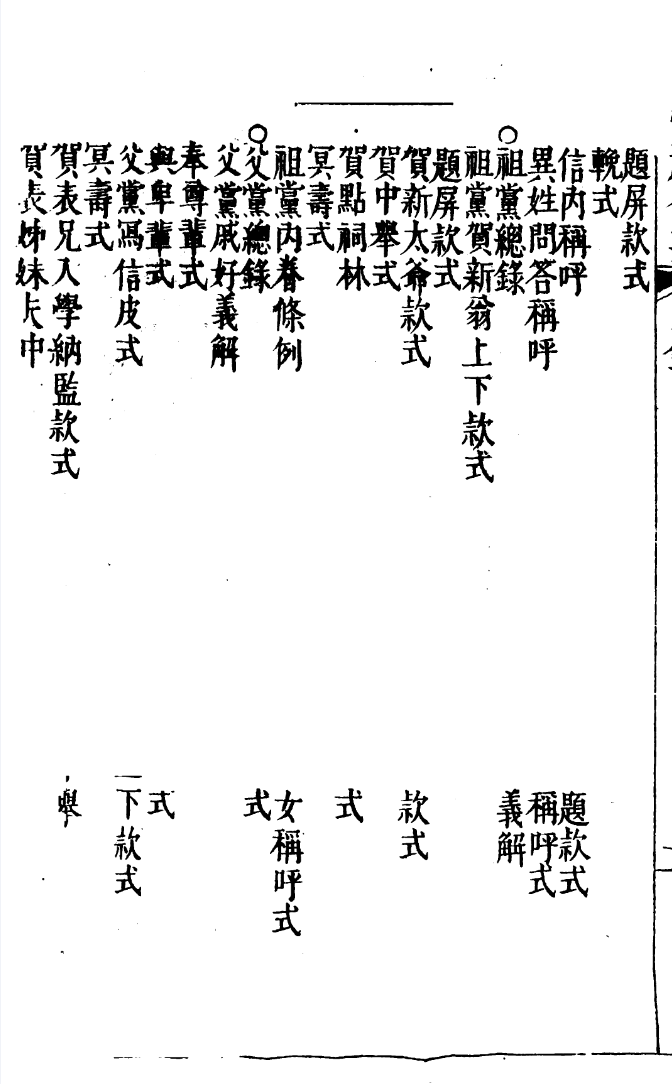 題屏款式
輓式
信內稱呼
題款式
異姓問答稱呼
稱呼式
○祖黨總錄
義解
祖黨賀新翁上下款式
題屏款式
賀新太爺款式
款式
賀中舉式
賀點詞林
式
冥壽式
祖黨內眷條例
女稱呼式
○父黨總錄
式
父黨戚好義解
奉尊輩式
與卑輩式
式
父黨寫信皮式
下款式
冥壽式
賀表兄入學納監款式
舉
賀表姊妹丈中